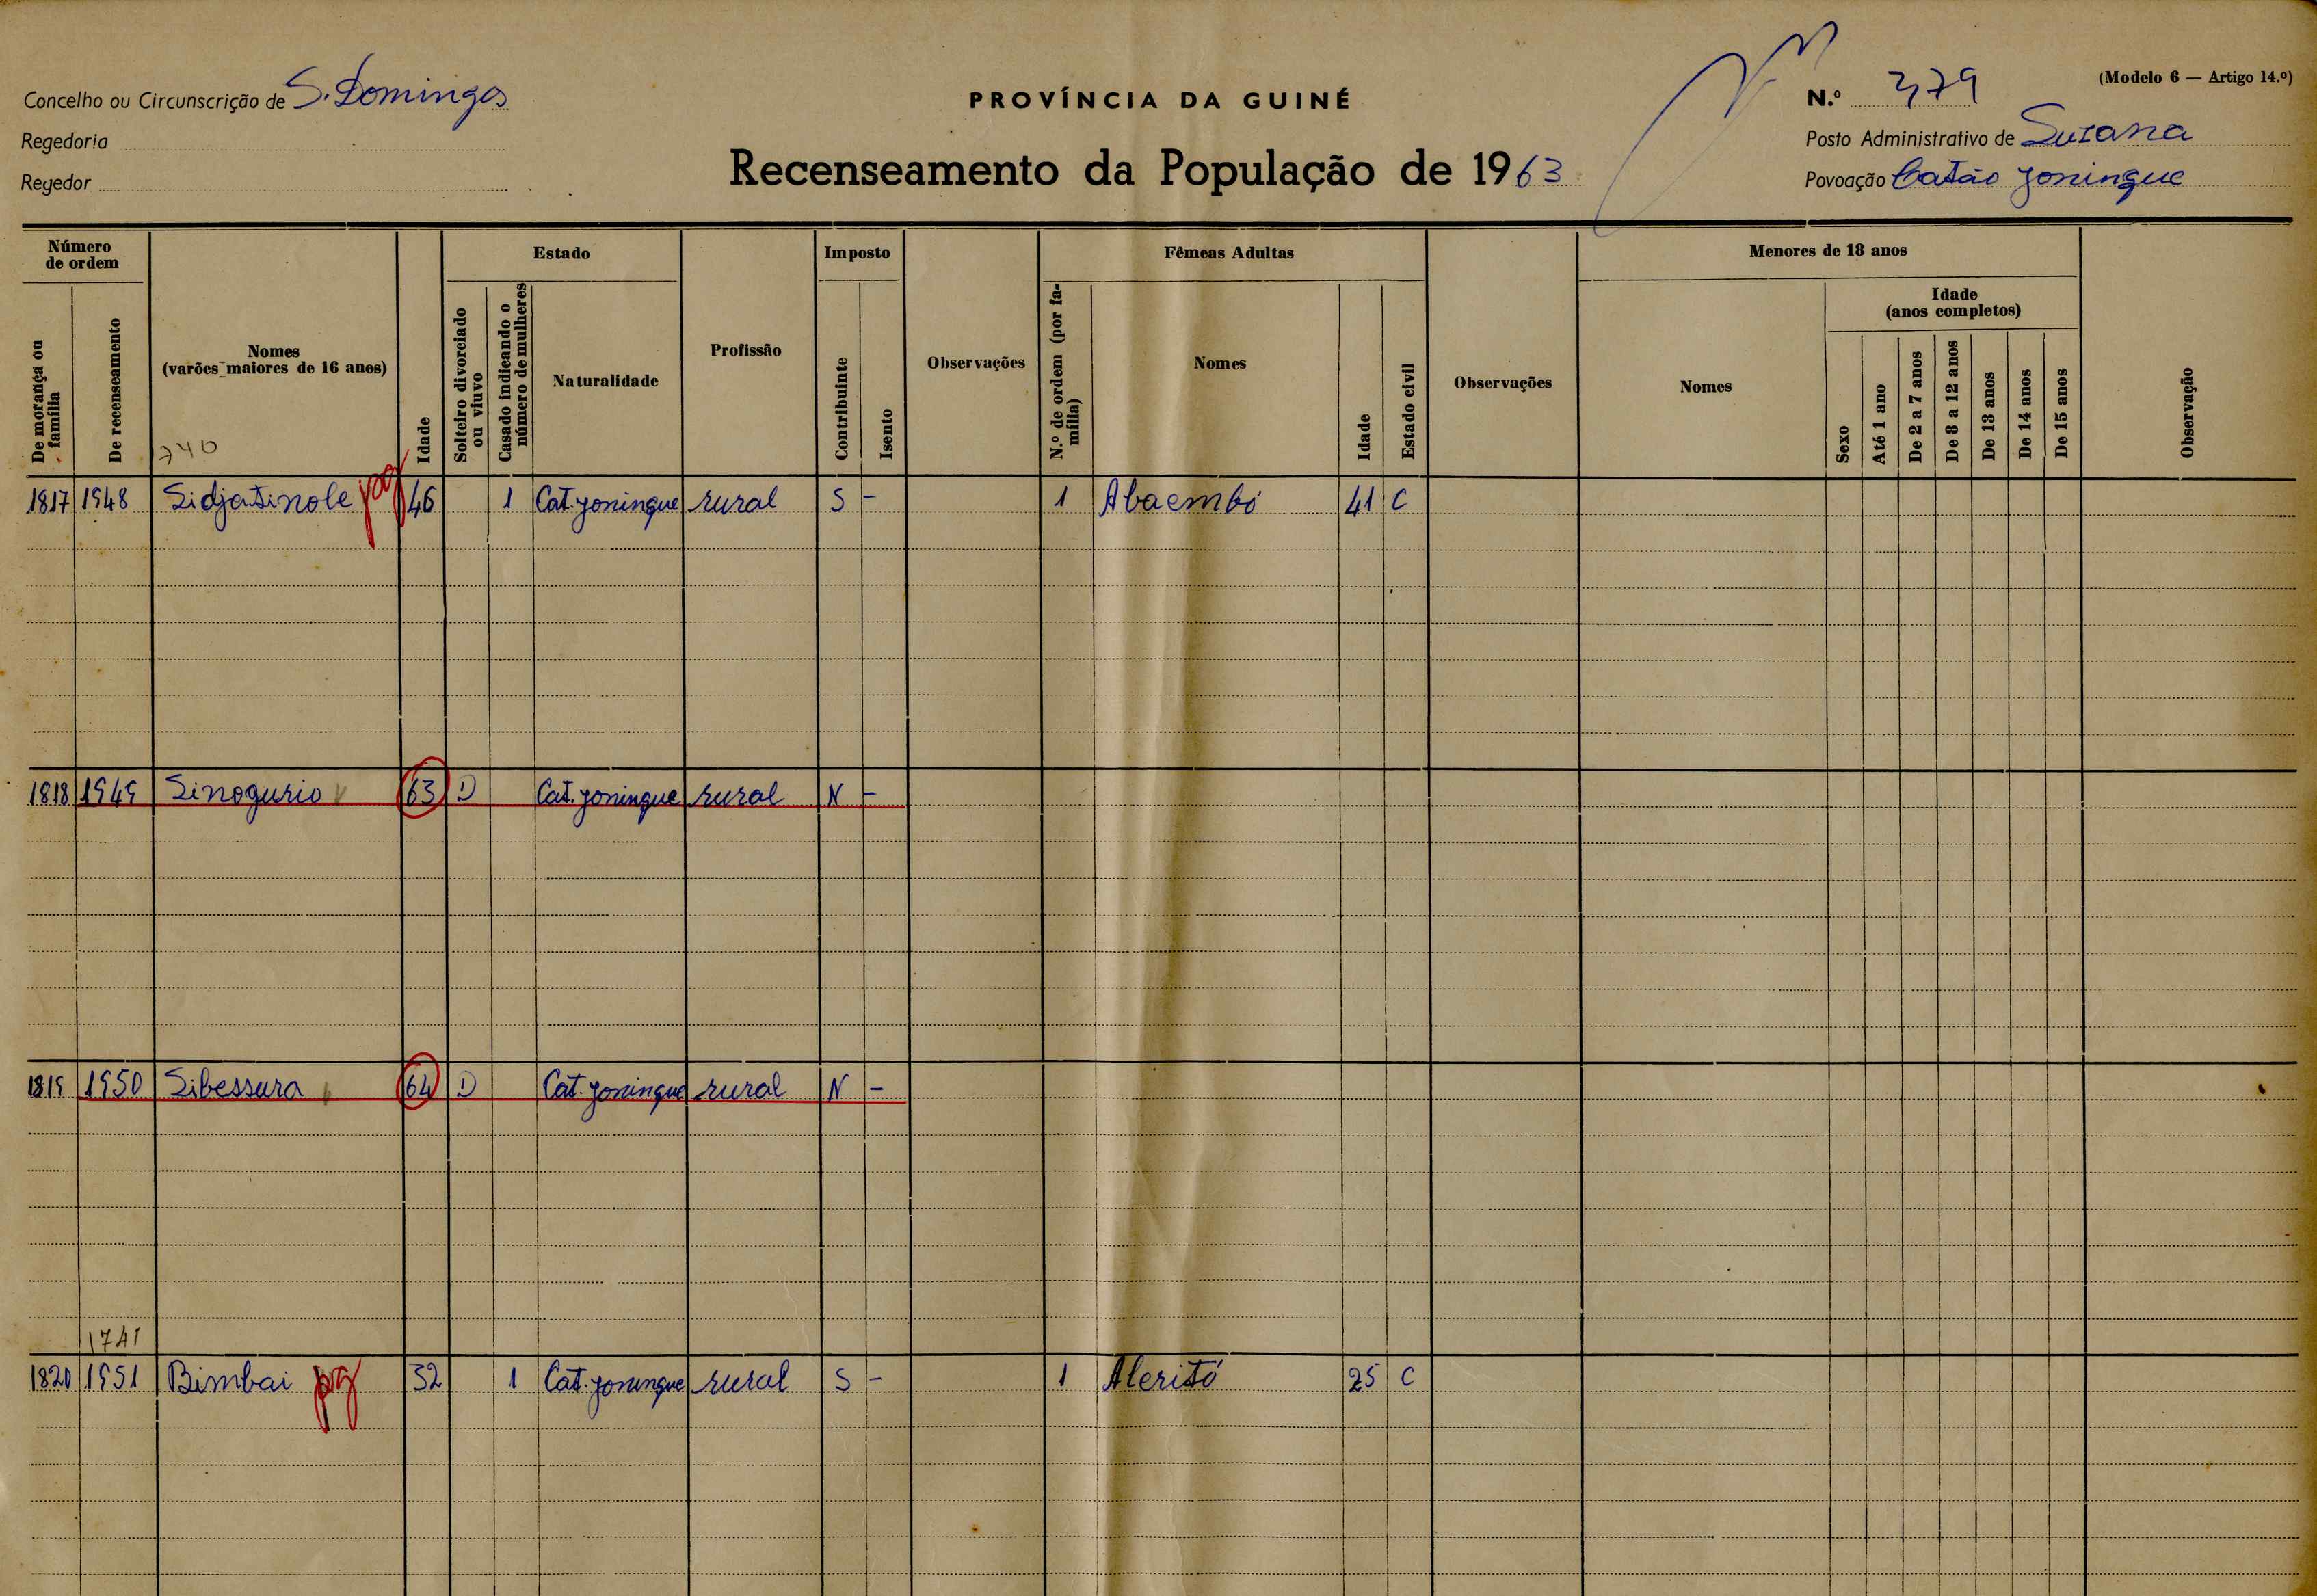 (Modelo 6 — Artigo 14.º)
Concelho ou Circunscrição de S. Domingos
PROVÍNCIA DA GUINÉ
N.º 379
Regedoria
Posto Administrativo de Suzana
Regedor
Recenseamento da População de 1963
Povoação Catão Joningue
Número de ordem
Estado
Imposto
Fêmeas Adultas
Menores de 18 anos
Idade (anos completos)
De morança ou família
De recenseamento
Nomes (varões maiores de 16 anos)
Idade
Solteiro divorciado ou viuvo
Casado indicando o número de mulheres
Naturalidade
Profissão
Contribuinte
Isento
Observações
N.º de ordem (por família)
Nomes
Idade
Estado civil
Observações
Nomes
Sexo
Até 1 ano
De 2 a 7 anos
De 8 a 12 anos
De 13 anos
De 14 anos
De 15 anos
Observação
1740
1817 1948 Sidjatinole pg 46 1 Cat. Joningue rural S - 1 Abaembó 41 C
1818 1949 Sinogurio 63 D Cat. Joningue rural N -
1819 1950 Sibessura 64 D Cat. Joningue rural N -
1741
1820 1951 Bimbai pg 32 1 Cat. Joningue rural S - 1 Aleritó 25 C